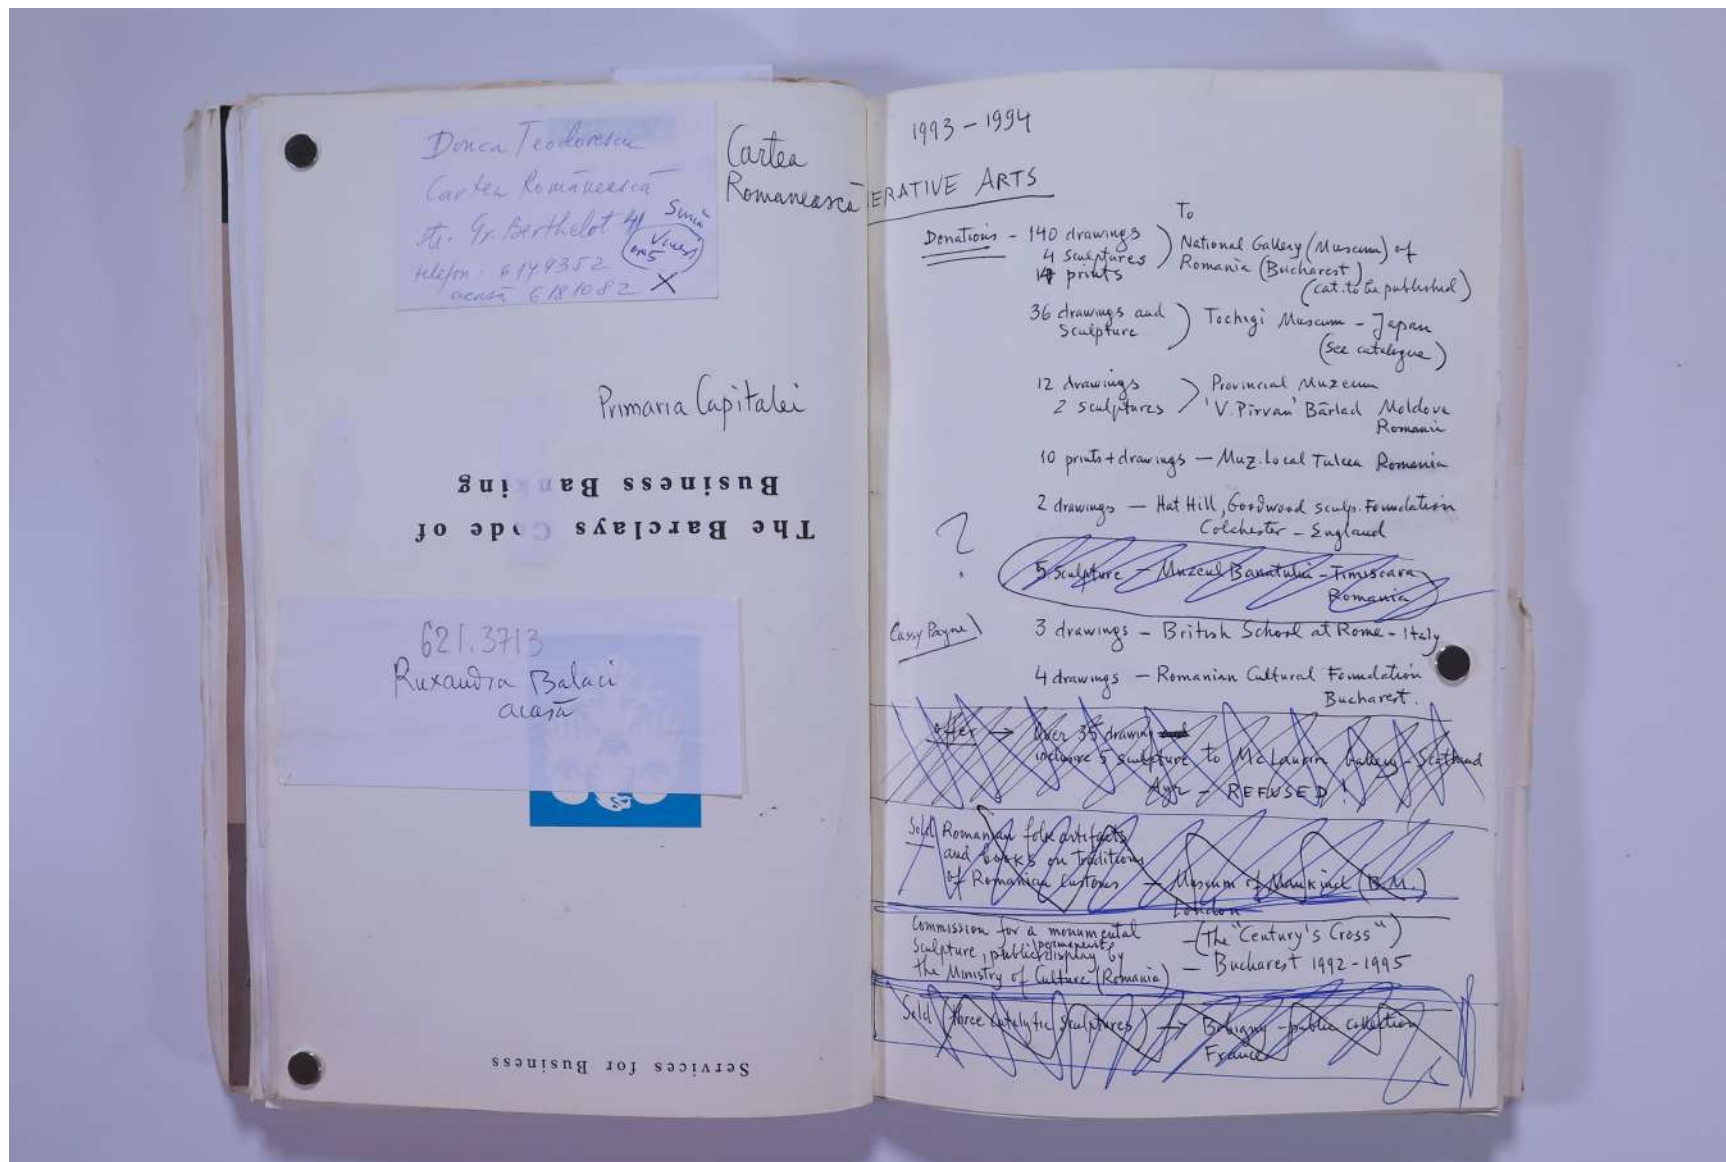 Donca Teodorescu
Cartea Românească
str. Gr. Berthelot 41
Sună
Vineri
ora 5
telefon: 6149352
acasă 6181082 X
Cartea
Romanească
Primaria Capitalei
The Barclays Code of
Business Banking
621.3713
Ruxandra Balaci
acasă
Services for Business
1993 - 1994
ERATIVE ARTS
Donations - 140 drawings
4 sculptures
prints
To
National Gallery (Museum) of
Romania (Bucharest)
(cat. to be published)
36 drawings and
Sculpture
Tochigi Museum - Japan
(see catalogue)
12 drawings
2 sculptures
Provincial Muzeum
'V. Pîrvan' Bârlad Moldova
Romania
10 prints + drawings - Muz. Local Tulcea Romania
2 drawings - Hat Hill, Goodwood sculp. Foundation
Colchester - England
?
5 sculpture - Muzeul Banatului - Timisoara
Romania
Cassy Payne)
3 drawings - British School at Rome - Italy
4 drawings - Romanian Cultural Foundation
Bucharest.
offer → Over 35 drawing
inclusive 5 sculpture to McLaurin Gallery - Scotland
Ayr - REFUSED!
Sold Romanian folk artifacts
and books on Traditions
of Romanian Customs - Museum of Mankind (B.M.)
London
Commission for a monumental
sculpture, public permanent display by
the Ministry of Culture (Romania)
- (The "Century's Cross")
- Bucharest 1992 - 1995
Sold (three catalytic sculptures) → Bobigny - public collection
France